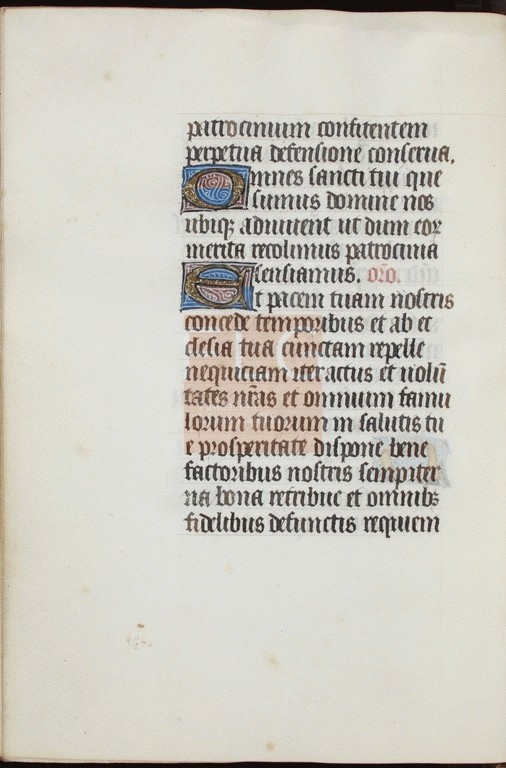 patrocinium confitentem
perpetua defensione conserua.
Omnes sancti tui que
sumus domine nos
ubiq; adiuuent ut dum eor
merita recolimus patrocinia
sensiamus. oro.
Et pacem tuam nostris
concede temporibus et ab ec
clesia tua cunctam repelle
nequiciam iter actus et uolū
tates nr̄as et omnium famu
lorum tuorum in salutis tu
e prosperitate dispone bene
factoribus nostris sempiter
na bona retribue et omnibꝫ
fidelibus defunctis requiem